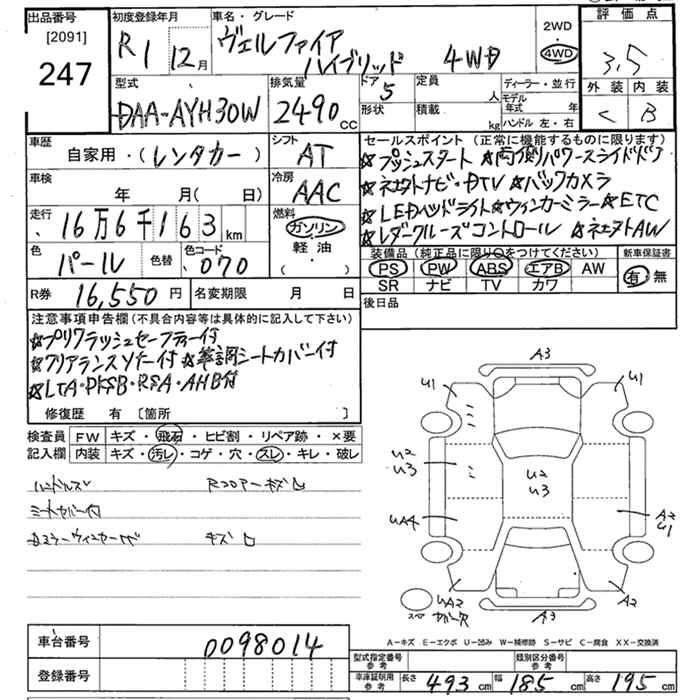 出品番号 初度登録年月 車名・グレード 2WD 評価点
[2091] R1 12月 ヴェルファイア 4WD
247 ハイブリッド 4WD 3,5
型式 排気量 ドア 5 定員 人 ディーラー・並行 外装 内装
DAA-AYH30W 2490cc 形状 積載 kg モデル年式 年 C B
ハンドル 左・右
車歴 自家用・(レンタカー) シフト AT セールスポイント (正常に機能するものに限ります)
☆プッシュスタート ☆両側パワースライドドア
車検 年 月(日) 冷房 AAC ☆ネエタトナビ・DTV ☆バックカメラ
走行 16万6千163km 燃料 ガソリン ☆LEDヘッドライト☆ウィンカーミラー☆ETC
軽油 ☆レダークルーズコントロール ☆ネエタトAW
色 パール 色替 色コード 070 ( ・ ) 装備品 (純正品に限り○をつけてください) 新車保証書
PS PW ABS エアB AW 有・無
R券 16,550円 名変期限 月 日 SR ナビ TV カワ
後日品
注意事項申告欄 (不具合内容等は具体的に記入して下さい)
☆プリクラッシュセーフティー付
☆クリアランスソナー付 ☆革調シートカバー付
☆LTA・PKSB・RSA・AHB付
修復歴 有 [箇所 ]
検査員 FW キズ・飛石・ヒビ割・リペア跡・×要
記入欄 内装 キズ・汚レ・コゲ・穴・スレ・キレ・破レ
ハンドルスレ
シートカバー付
キズ
A3
U1 U1
U2 U3 U2 U3
UA4 A2 U1
UA2 A2
A3
A-キズ E-エクボ U-凹み W-補修跡 S-サビ C-腐食 XX-交換済
車台番号 0098014 型式指定番号 参考 類別区分番号 参考
登録番号 車庫証明用 参考 長さ 493cm 幅 185cm 高さ 195cm